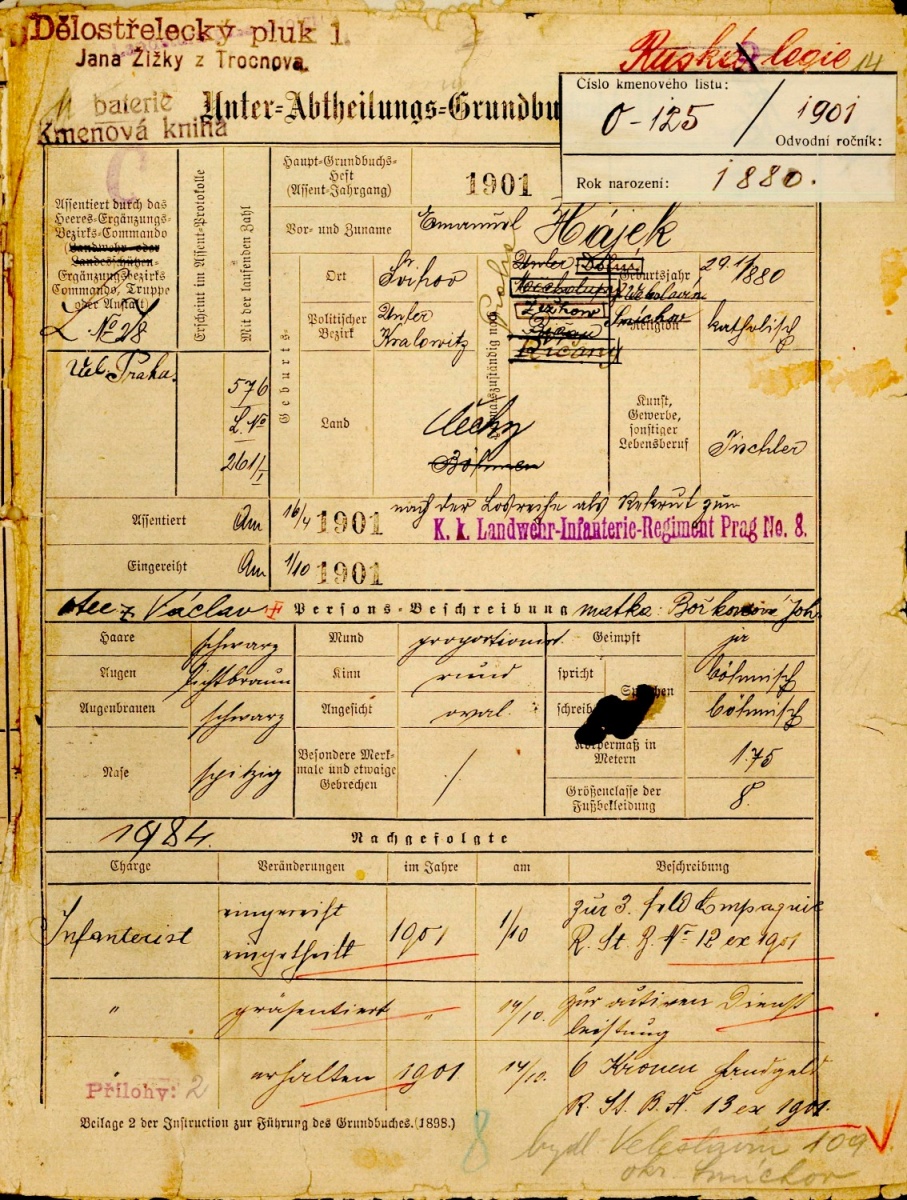 Dělostřelecký pluk 1.
Jana Žižky z Trocnova.
Ruská legie
14
baterie
Kmenová kniha
Unter-Abtheilungs-Grundbu
Číslo kmenového listu:
0-125 / 1901
Odvodní ročník:
Rok narození: 1880.
C
Assentiert durch das
Heeres-Ergänzungs-
Bezirks-Commando
(Landwehr- oder
Landesschützen-
Ergänzungsbezirks
Commando, Truppe
oder Anstalt)
L № 2/8
Praha.
Erscheint im Assent-Protokolle
Mit der laufenden Zahl
576
L. №
261/I
Haupt-Grundbuchs-
Heft
(Assent-Jahrgang)
1901
Vor- und Zuname
Emanuel Hájek
Geburts-
Ort
Švihov
Politischer
Bezirk
Unter
Kralowitz
Land
Čechy
Böhmen
Unter
Žižkow
Říčany
Geburtsjahr
29. 11/1880
Smichow
Religion
katholisch
Kunst,
Gewerbe,
sonstiger
Lebensberuf
Tischler
Assentiert
Am 16/4 1901 nach der Losreihe als Rekrut zum
K. k. Landwehr-Infanterie-Regiment Prag No. 8.
Eingereiht
Am 1/10 1901
otec Václav Persons-Beschreibung matka: Joh.
Haare schwarz Mund proportioniert Geimpft ja
Augen lichtbraun Kinn rund spricht böhmisch
Sprachen
Augenbrauen schwarz Angesicht oval. schreibt böhmisch
Nase spitzig
Besondere Merk-
male und etwaige
Gebrechen /
Körpermaß in
Metern 1.75
Größenclasse der
Fußbekleidung 8.
1984. Nachgefolgte
Charge Veränderungen im Jahre am Beschreibung
Infanterist eingereiht 1901 1/10 zur 3. Feld Compagnie
eingetheilt R. St. B. № 12 ex 1901
" präsentiert " 14/10. zur activen Dienst
leistung
erhalten 1901 14/10. 6 Kronen Handgeld
R. St. B. N. 13 ex 1901.
Přílohy: 2
Beilage 2 der Instruction zur Führung des Grundbuches. (1898.)
8
bydl. Veleslavín 109
okr. Smíchov